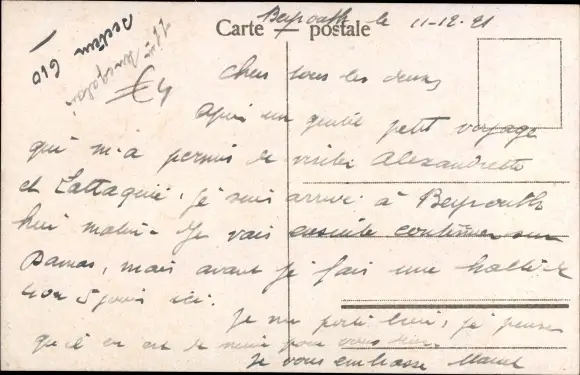 Carte postale
Beyrouth le 11-12-21
Chers tous les deux,
Après un gentil petit voyage
qui m'a permis de visiter Alexandrette
et Lattaquié, je suis arrivé à Beyrouth
hui matin. Je vais ensuite continuer sur
Damas, mais avant je fais une halte de
4 ou 5 jours ici.
Je me porte bien, je pense
qu'il en est de même pour vous
Je vous embrasse Marcel
610